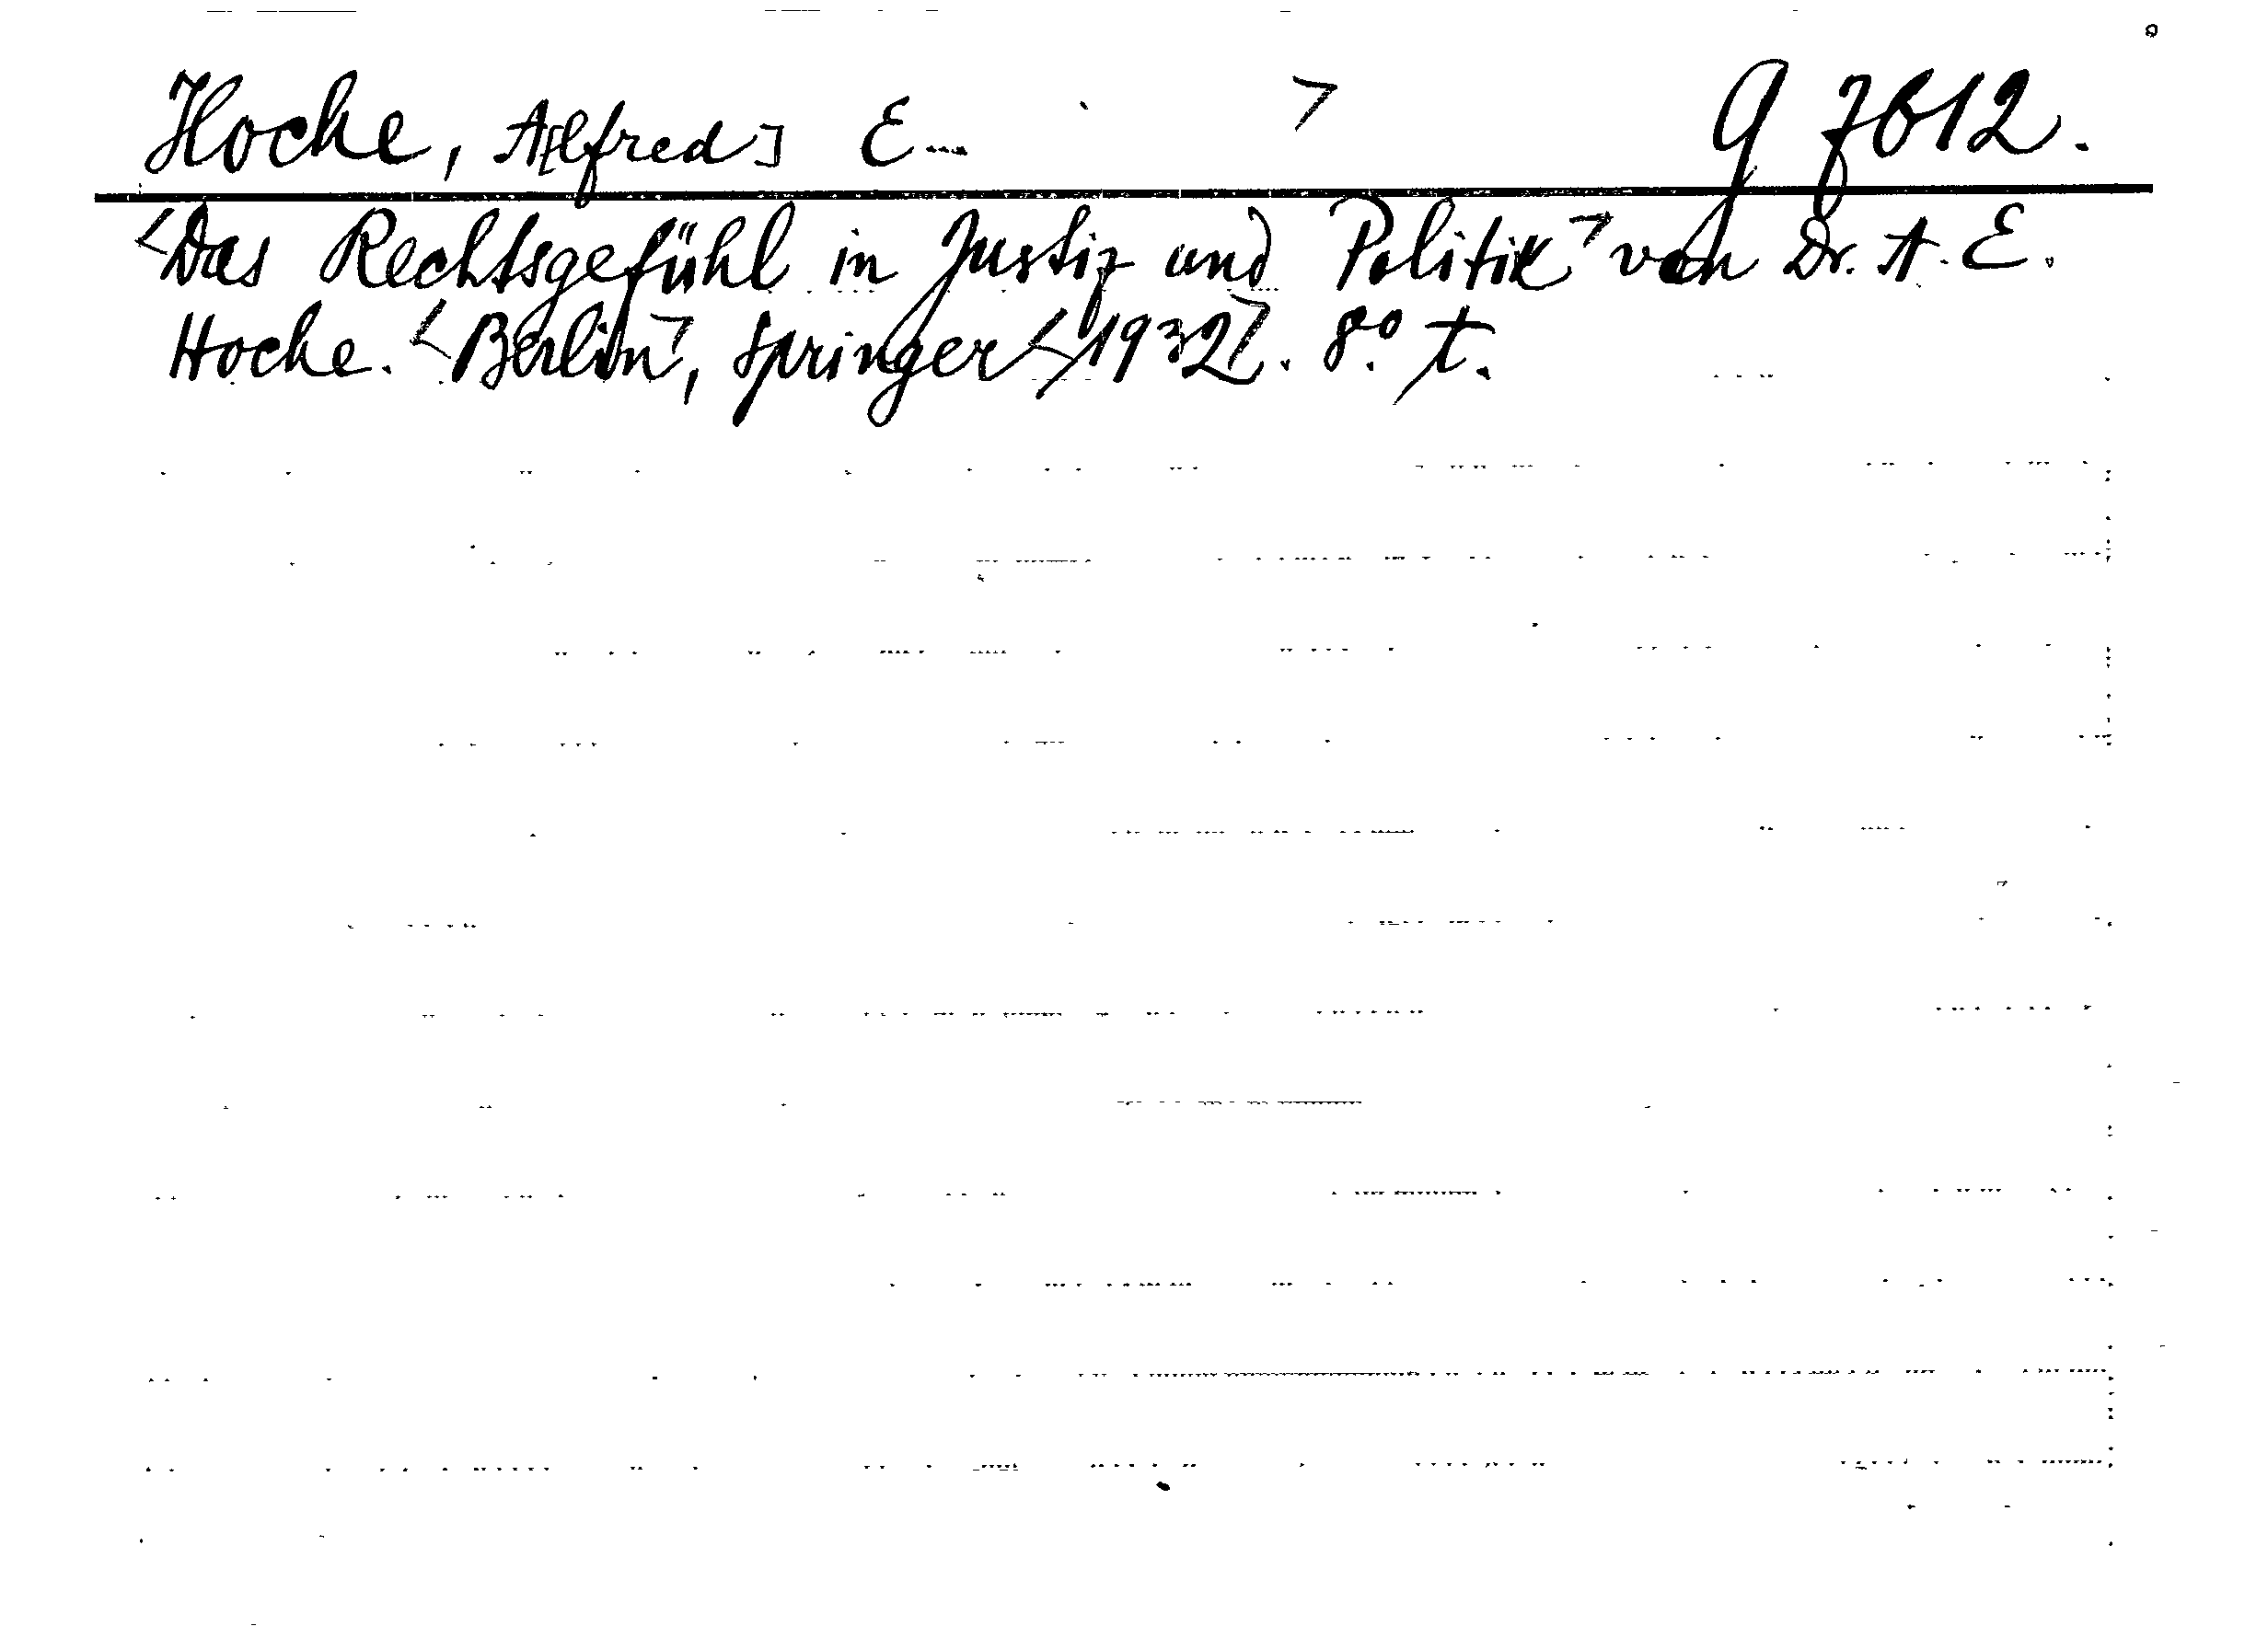 Hoche, A[lfred] E... > G 7612.
<Das Rechtsgefühl in Justiz und Politik> von Dr. A. E.
Hoche. <Berlin>, Springer <1932>. 8.° t.